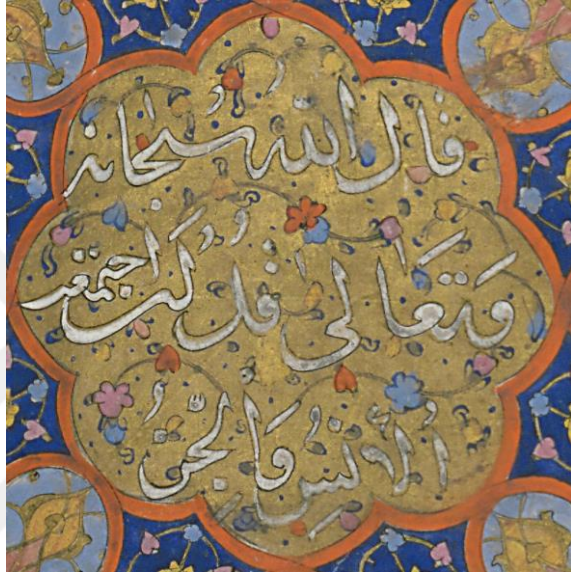 قال الله سبحانه
وتعالى قل لئن اجتمعت
الانس والجن